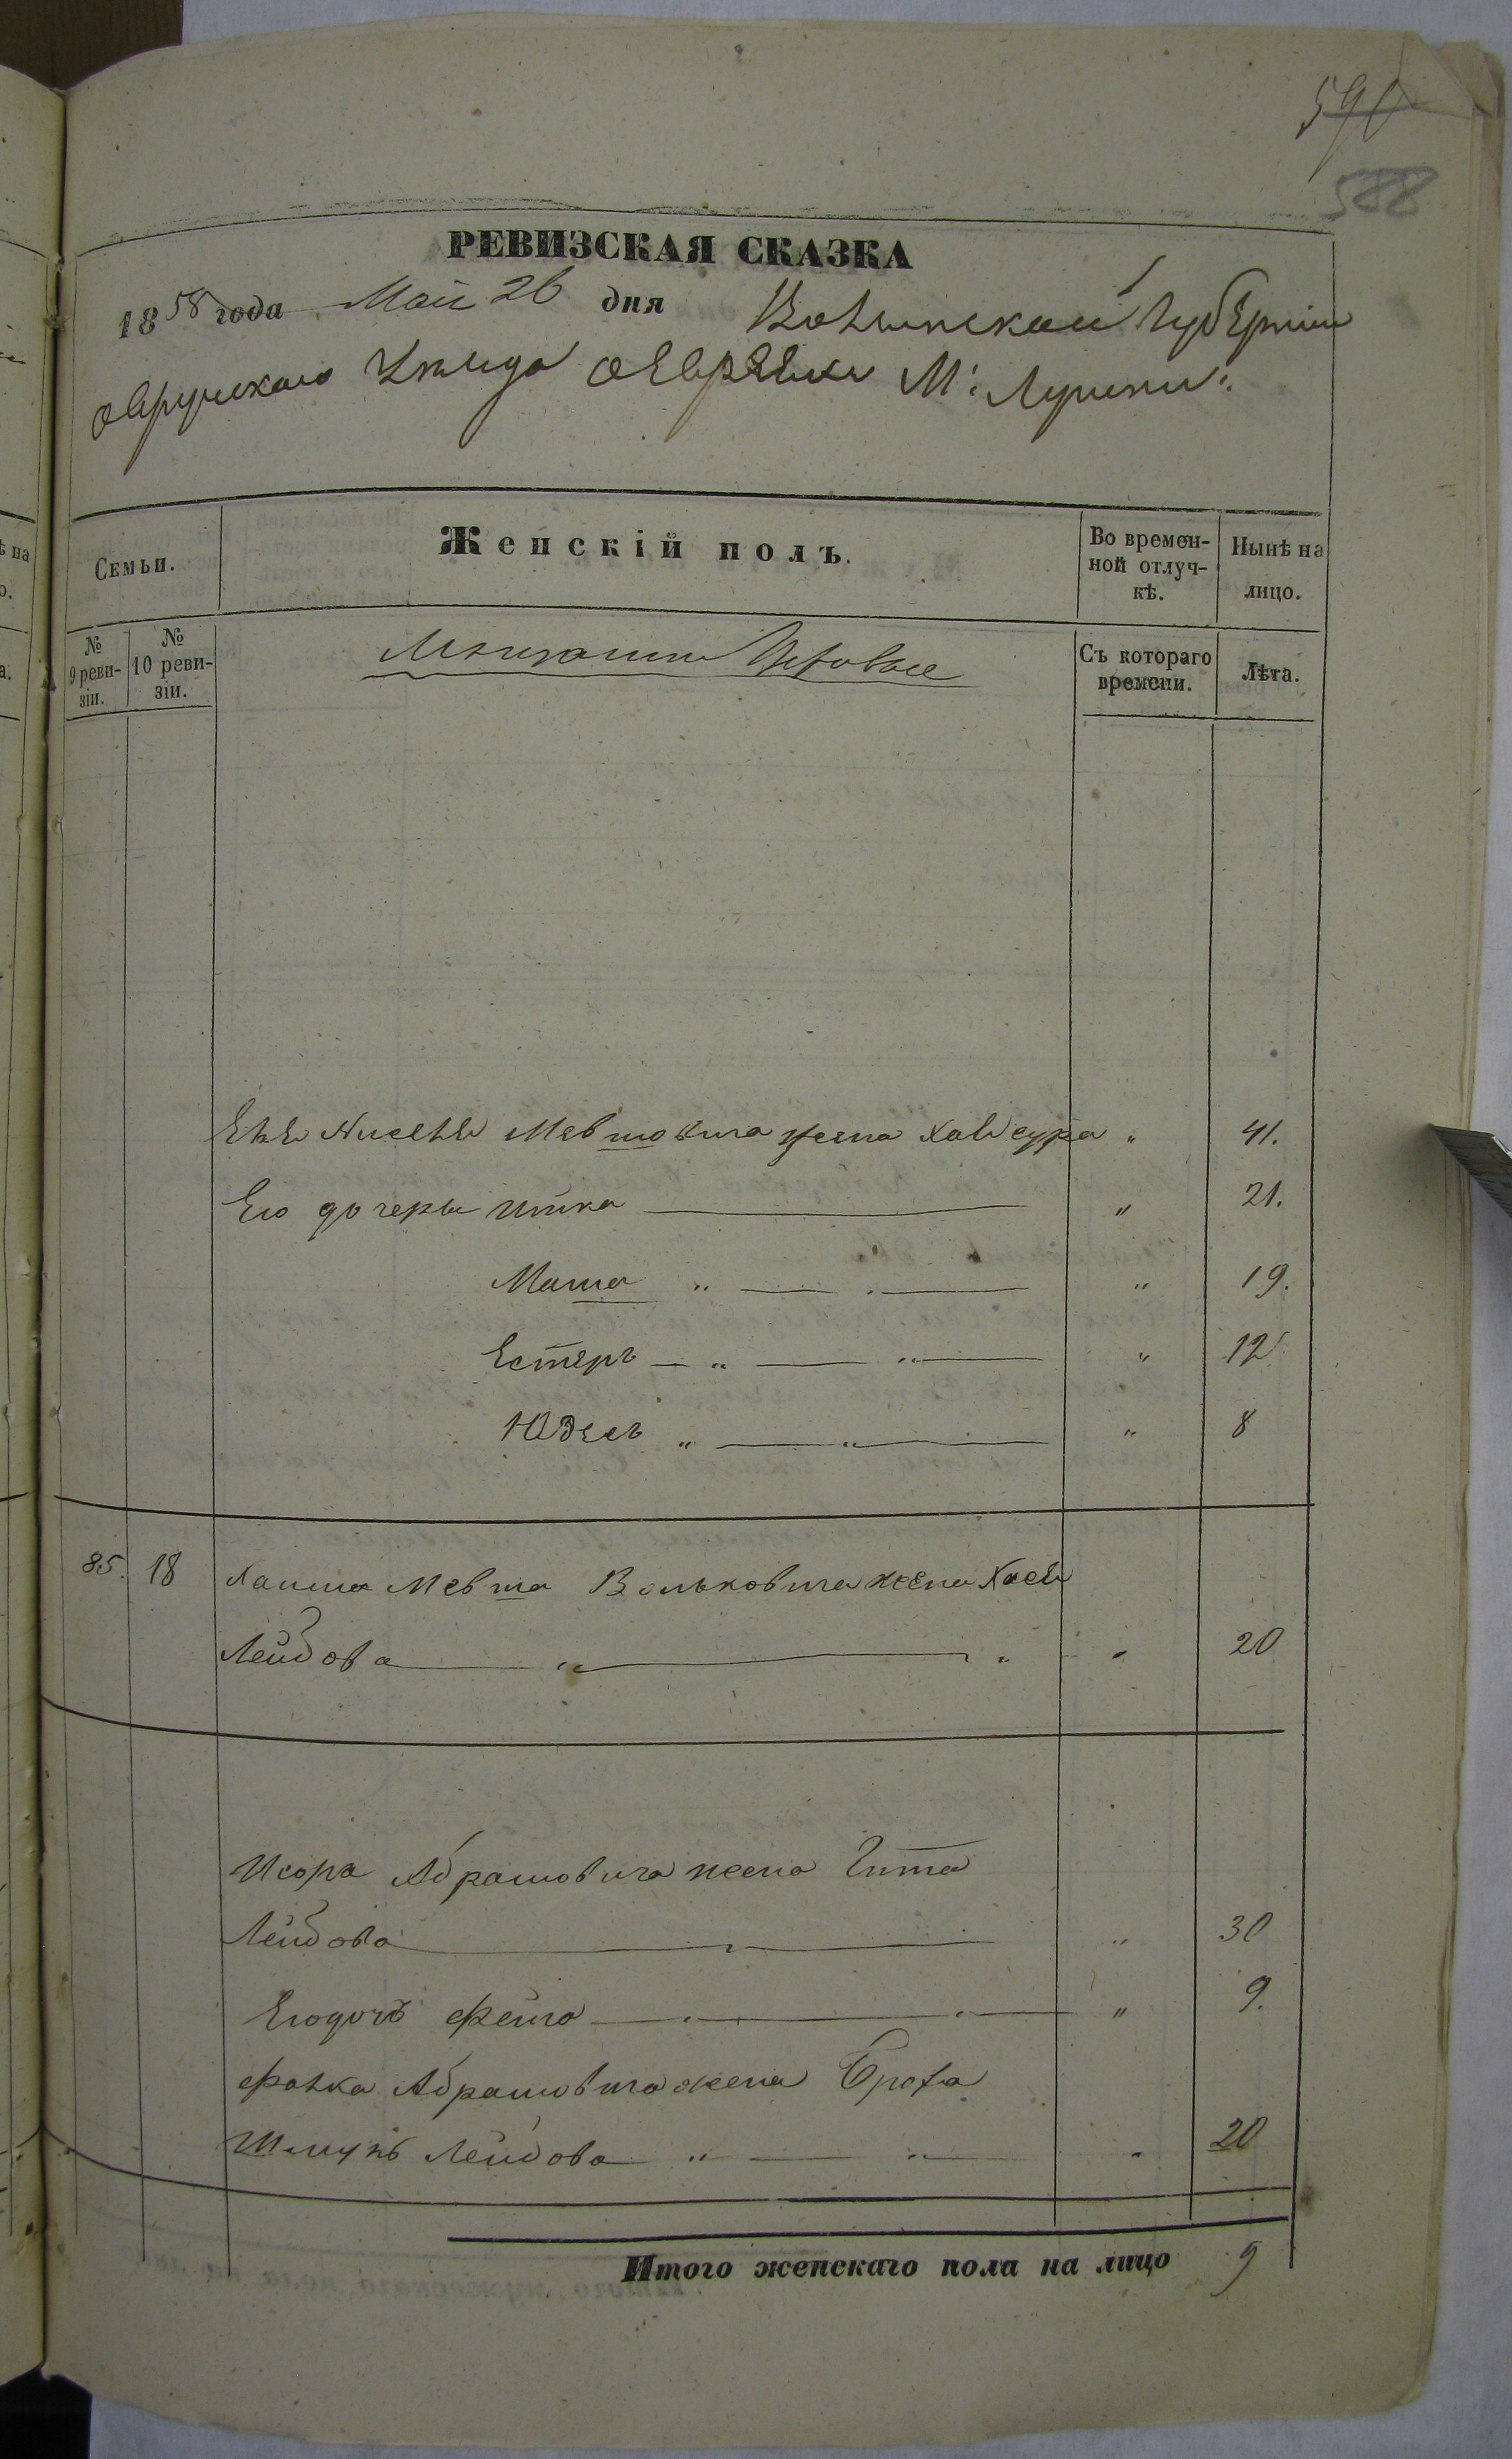 590
588
РЕВИЗСКАЯ СКАЗКА
1858 года Мая 26 дня Волынской Губерніи
Овручскаго Уѣзда о Евреяхъ М: Лугинъ:
Семьи. Женскій полъ. Во времен-ной отлуч-кѣ. Нынѣ на лицо.
№ 9 реви-зіи. № 10 реви-зіи. Съ котораго времени. Лѣта.
Мевшовича жена Хая Сура " 41.
Его дочери Итка " 21.
Маша " " 19.
Естеръ " " " 12
Юдесъ " " " 8
85. 18 Мевша Вольковича жена Хая
Лейбова " " " 20
Исора Абрамовича жена Гитта
Лейбова " " 30
Его дочь Фейга " 9.
Фалка Абрамовича жена Броха
Лейбова " " " 20
Итого женскаго пола на лицо 9